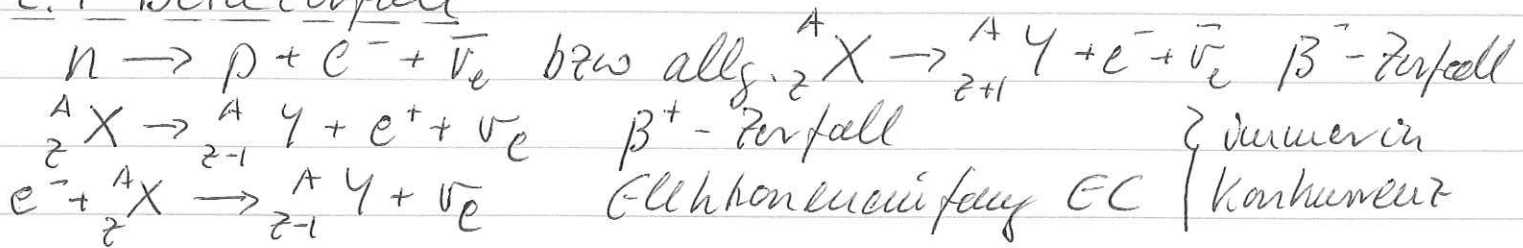 2.1 Betazerfall
n → p + e⁻ + ν̄ₑ bzw allg. ᴬ_Z X → ᴬ_Z+1 Y + e⁻ + ν̄ₑ β⁻-Zerfall
ᴬ_Z X → ᴬ_Z-1 Y + e⁺ + νₑ β⁺-Zerfall } immer in
e⁻ + ᴬ_Z X → ᴬ_Z-1 Y + νₑ Elektroneneinfang EC } Konkurrenz